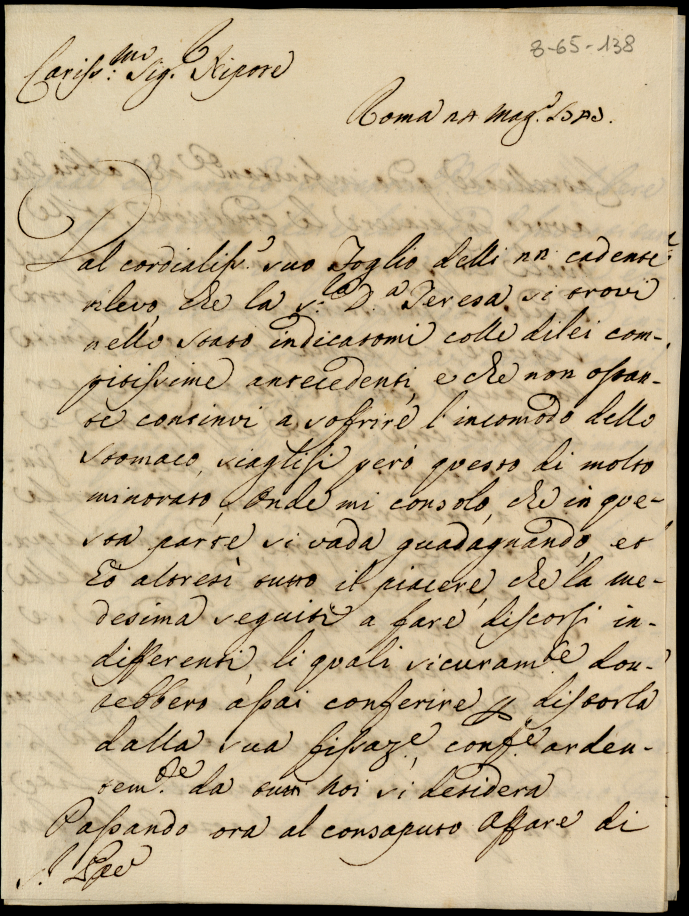 8-65-138
Cariss:mo Sig.r Nipote
Roma Mag.o
Dal cordialiss.o suo Foglio delli cadente
rilevo, che la S.ra D.a Teresa si trovi
nello stato indicatomi colle di lei com-
pitissime antecedenti, e che non ostan-
te continvi a soffrire l'incomodo dello
stomaco, siaglisi però questo di molto
minorato, Onde mi consolo, che in que-
sta parte si vada guadagnando, et
Ho altresì tutto il piacere, che la me-
desima seguiti a fare discorsi in-
differenti, li quali sicuram.te dou-
rebbero assai conferire p distorla
dalla sua fissaz.e conf.e arden-
tem.te da tutti noi si desidera
Passando ora al consaputo Affare di
S.